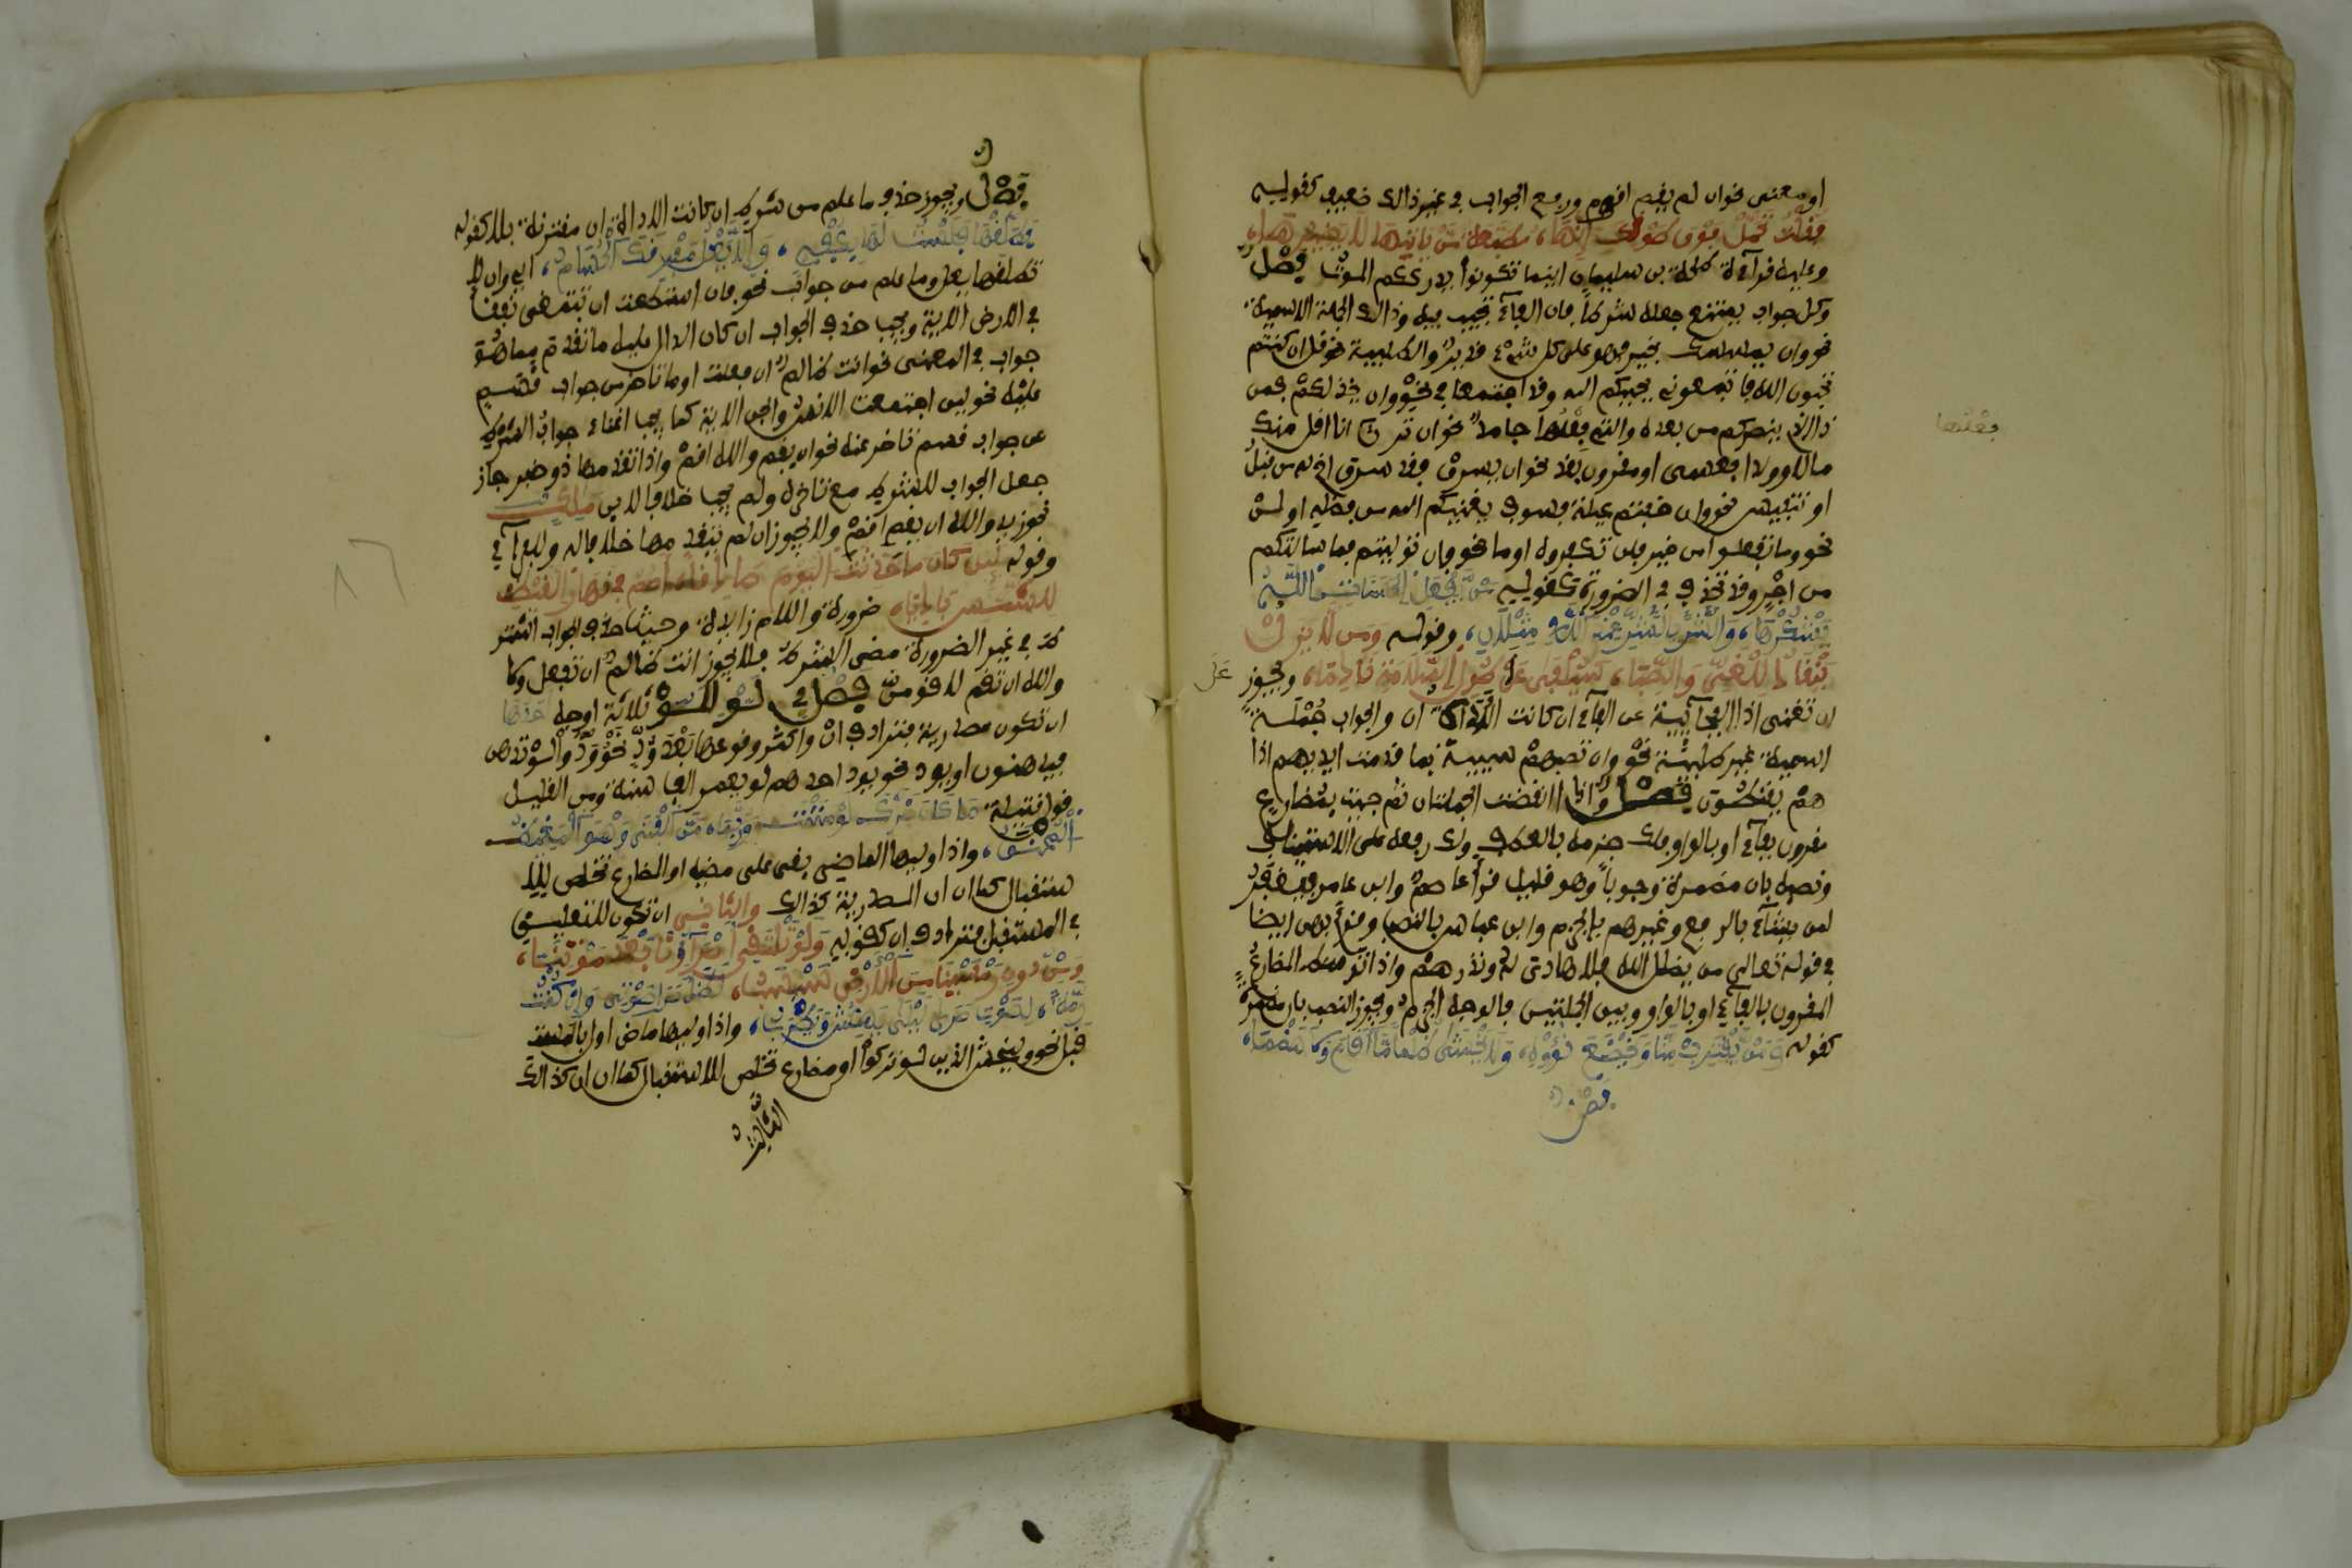 او معنى نحو ان لم يقم اقوم ورفع الجواب في غير ذالك ضعيف كقوليه
فقلت تحمل فوق طوقك انها، مطبعة من ياتها لا يضيرها،
وعليه قرآءة طلحة بن سليمان اينما تكونوا يدرككم الموت فصل
وكل جواب يمتنع جعله شرطا فان الفآء تجب فيه وذالك الجملة الاسمية
نحو وان يمسسك بخير فهو على كل شيء قدير والطلبية نحو قل ان كنتم
تحبون الله فاتبعوني يحببكم الله وقد اجتمعا في نحو وان يخذلكم فمن
ذا الذي ينصركم من بعده والتي فعلها جامد نحو ان ترن انا اقل منك
مالا وولدا فعسى او مقرون بقد نحو ان يسرق فقد سرق اخ له من قبل
او تنفيس نحو وان خفتم عيلة فسوف يغنيكم الله من فضله او لن
نحو وما تفعلوا من خير فلن تكفروه او ما نحو فان توليتم فما سالتكم
من اجر وقد تحذف في الضرورة كقوليه من يفعل الحسنات الله
يشكرها، والشر بالشر عند الله مثلان، وقوله ومن لا يزل
ينقاد للغي والصبا، سيلفى على طول السلامة نادما، ويجوز
ان تغنى اذا الفجآئية عن الفآء ان كانت الاداة ان والجواب جملة
اسمية غير طلبية نحو وان تصبهم سيئة بما قدمت ايديهم اذا
هم يقنطون فصل واذا انقضت الجملتان ثم جيئت بمضارع
مقرون بفآء او بالواو فلك جزمه بالعطف ولك رفعه على الاستيناف
ونصبه بان مضمرة وجوبا وهو قليل قرأ عاصم وابن عامر فيغفر
لمن يشآء بالرفع وغيرهم بالجزم وابن عباس بالنصب وقرئ بهن ايضا
في قوله تعالى من يضلل الله فلا هادي له ونذرهم واذا توسط المضارع
المقرون بالفآء او بالواو وبين الجملتين فالوجه الجزم ويجوز النصب بان مضمرة
كقوله ومن يقترب منا ويخضع نؤوه، ولا يخش ظلما ما اقام ولا هضما،
فصل
فعلها
على
فصل ويجوز حذف ما علم من شرط ان كانت الاداة ان مقترنة بلا كقوله
فطلقها فلست لها بكفء، والا يعل مفرقك الحسام، اي وان لا
تطلقها يعل وما علم من جواب نحو فان استطعت ان تبتغي نفقا
في الارض الاية ويجب حذف الجواب ان كان الدال عليه ما تقدم مما هو
جواب في المعنى نحو انت ظالم ان فعلت او ما تاخر من جواب قسم
عليه نحو ليس اجتمعت الانس والجن الاية كما يجب اغناء جواب الشرط
عن جواب قسم تاخر عنه نحو ان يقم والله اقم واذا تقدمها ذو خبر جاز
جعل الجواب للشرط مع تاخره ولم يجب خلافا لابن ملك
نحو زيد والله ان يقم اقم ولا يجوز ان لم يتقدمها خلافا له وللفرآء في
وقوله لئن كان ما حدثته اليوم صادقا اصم في نهار القيظ
للشمس باديا، ضرورة واللام زايدة وحيث حذف الجواب اشتر
ط في غير الضرورة مضي الشرط فلا يجوز انت ظالم ان تفعل ولا
والله ان تقم لاقومن فصل في لو للو ثلاثة اوجه احدها
ان تكون مصدرية فترادف ان واكثر وقوعها بعد ود نحو ودوا لو تدهن
فيدهنون او يود نحو يود احدهم لو يعمر الف سنة ومن القليل
قول قتيلة ما كان ضرك لو مننت وربما من الفتى وهو المغيظ
المحنق، واذا وليها الماضي بقي على مضيه او المضارع تخلص للا
ستقبال كما ان ان المصدرية كذالك والثاني ان تكون للتعليق
في المستقبل فترادف ان كقوله ولو تلتقي اصدآؤنا بعد موتنا،
ومن دون رمسينا من الارض سبسب، لظل صدى صوتي وان كنت
رمة، لصوت صدى ليلى يهش ويطرب، واذا وليها ماض اول بالمست
قبل نحو وليخش الذين لو تركوا او مضارع تخلص للاستقبال كما ان ان كذالك
الثالث